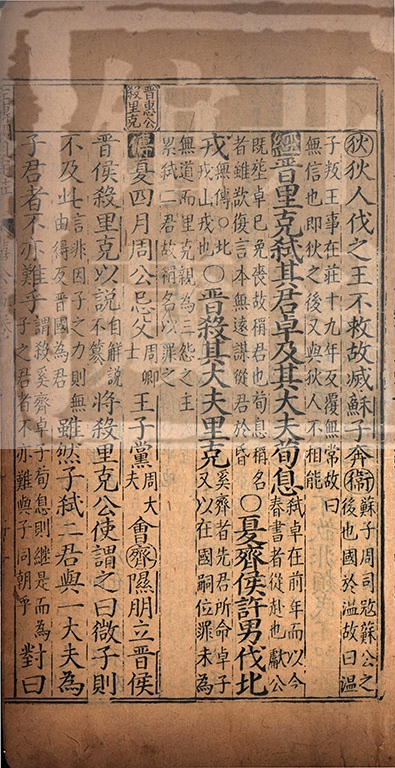 狄狄人伐之王不救故滅蘇子奔衛
蘇子周司寇蘇公之
後也國於溫故曰溫
子叛王事在莊十九年反覆無常故曰
無信也即狄之後又與狄人不相能
經晉里克弒其君卓及其大夫荀息
弒卓在前年而以今
春書者從赴也獻公
既葬卓已免喪故稱君也荀息稱名
者雖欲復言本無遠謀從君於昏
○夏齊侯許男伐北
戎
無傳○北
戎山戎也
○晉殺其大夫里克
奚齊者先君所命卓子
又以在國嗣位罪未為
無道而里克親為三怨之主
累弒二君故稱名以罪之
晉惠公
殺里克
傳夏四月周公忌父
周卿
士
王子黨
周大
夫
會齊隰朋立晉侯
晉侯殺里克以說
自解說
不篡
將殺里克公使謂之曰微子則
不及此
言非因子之力則無
由得反晉國為君
雖然子弒二君與一大夫為
子君者不亦難乎
謂殺奚齊卓子荀息則繼是而為
子之君者不亦難與子同朝乎
對曰